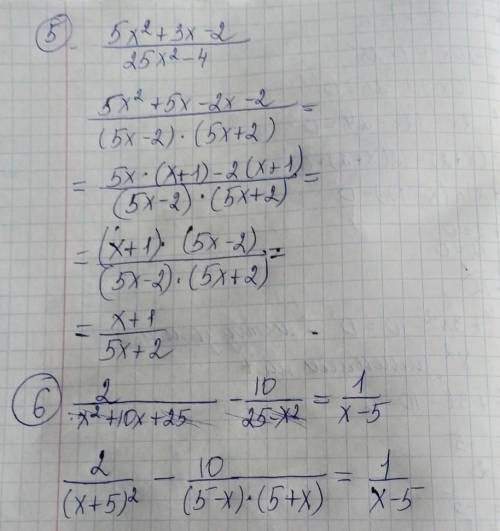 5. (5x² + 3x - 2)/(25x² - 4)
(5x² + 5x - 2x - 2)/((5x - 2) · (5x + 2)) =
= (5x · (x+1) - 2(x+1))/((5x - 2) · (5x + 2)) =
= ((x+1) · (5x - 2))/((5x - 2) · (5x + 2)) =
= (x+1)/(5x+2)
6 2/(x² + 10x + 25) - 10/(25 - x²) = 1/(x - 5)
2/(x+5)² - 10/((5 - x) · (5 + x)) = 1/(x - 5)